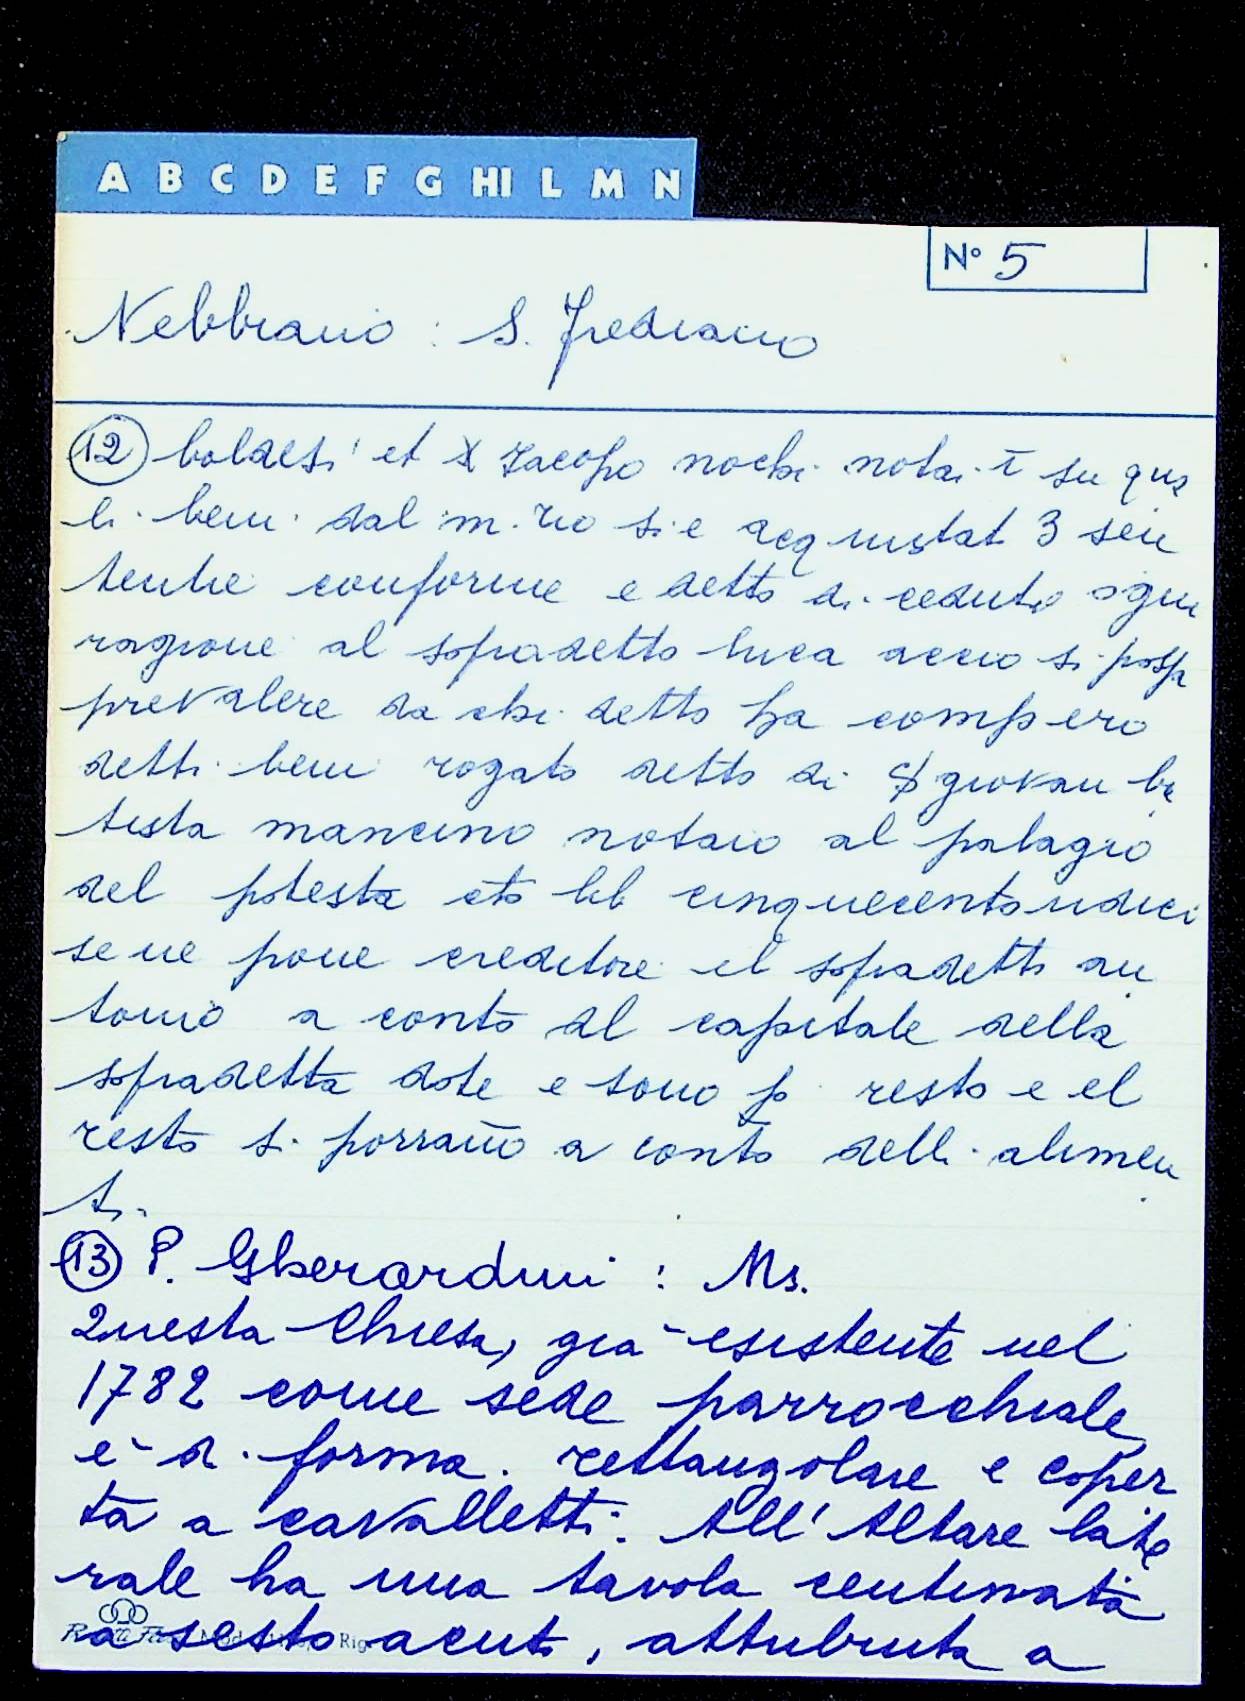 A B C D E F G HI L M N
N° 5
Nebbiano : S. Frediano
12 baldesi et S Jacopo nochi notai ī su que
li beni dal m.rio si e acquistati 3 sen
tentie conforme e detto di ceduto ogni
ragione al sopradetto luca accio si possa
prevalere da chi detto ha compero
detti beni rogato detto di S giovan ba
tista mancino notaio al palagio
del potesta eto lib cinquecentoundici
se ne pone creditore il sopradetto an
tonio a conto del capitale della
sopradetta dote e sono p resto e el
resto si porrano a conto delli alimen
ti.
13 P. Gherardini : Ms.
Questa Chiesa, già esistente nel
1782 come sede parrocchiale
è di forma rettangolare e coper
ta a cavalletti. All' Altare late
rale ha una tavola centinata
a sesto acuto, attribuita a